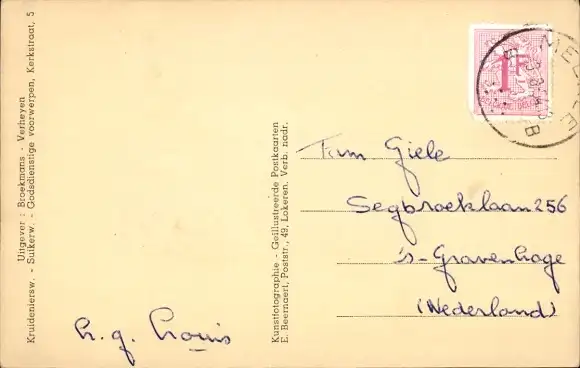 Uitgever : Broekmans - Verheyen
Kruideniersw. - Suikerw. - Godsdienstige voorwerpen, Kerkstraat, 5
Kunstfotographie - Geïllustreerde Postkaarten
E. Beernaert, Poststr., 49, Lokeren. Verb. nadr.
1F
Fam Giele
Segbroeklaan 256
's-Gravenhage
(Nederland)
h. g. Louis